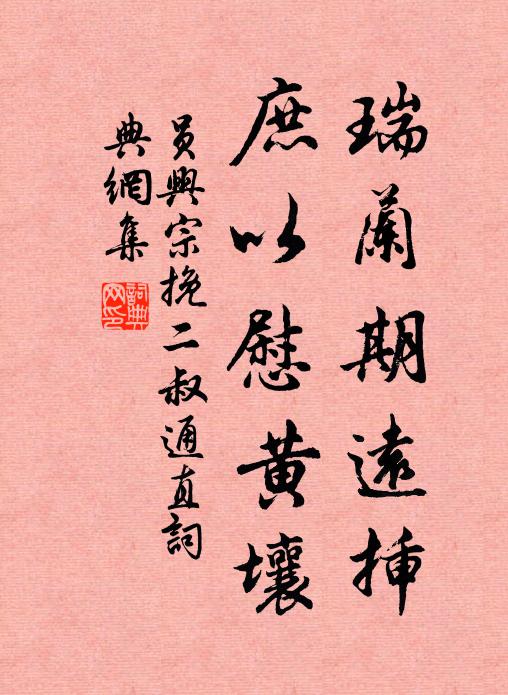 瑞蘭期遠挿
庶以慰黄壤
員興宗挽二叔通直詞
典網集
詞典網印